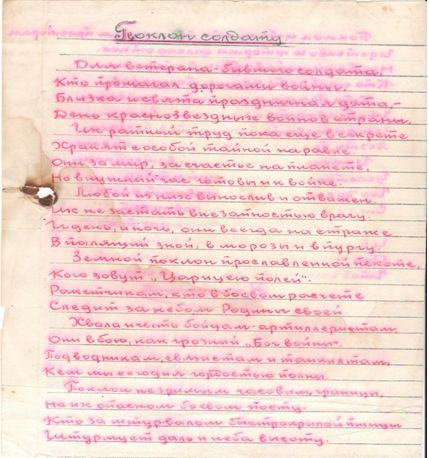 Поклон солдату
Для ветерана - бывшего солдата,
Кто прошагал дорогами войны.
Близка и свята праздничная дата,-
День краснозвездных воинов страны.
Их ратный труд пока еще в секрете
Хранят с особой тайной наравне
Они за мир, за счастье на планете,
Но в нужный час готовы и к войне.
Любой из них вынослив и отважен
Их не застать внезапностью врагу.
И день, и ночь, они всегда на страже
В палящий зной, в морозы и в пургу.
Земной поклон прославленной пехоте,
Кого зовут „Царицею полей".
Ракетчикам, кто в боевом расчете
Следит за небом Родины своей
Хвала и честь бойцам-артиллеристам
Они в бою, как грозный „Бог войны".
Подводникам, связистам и танкистам,
Кем мы сегодня гордостью полны.
Поклон незримым часовым границы,
На их опасном боевом посту.
Кто за штурвалом быстрокрылой птицы
Штурмует даль и неба высоту.